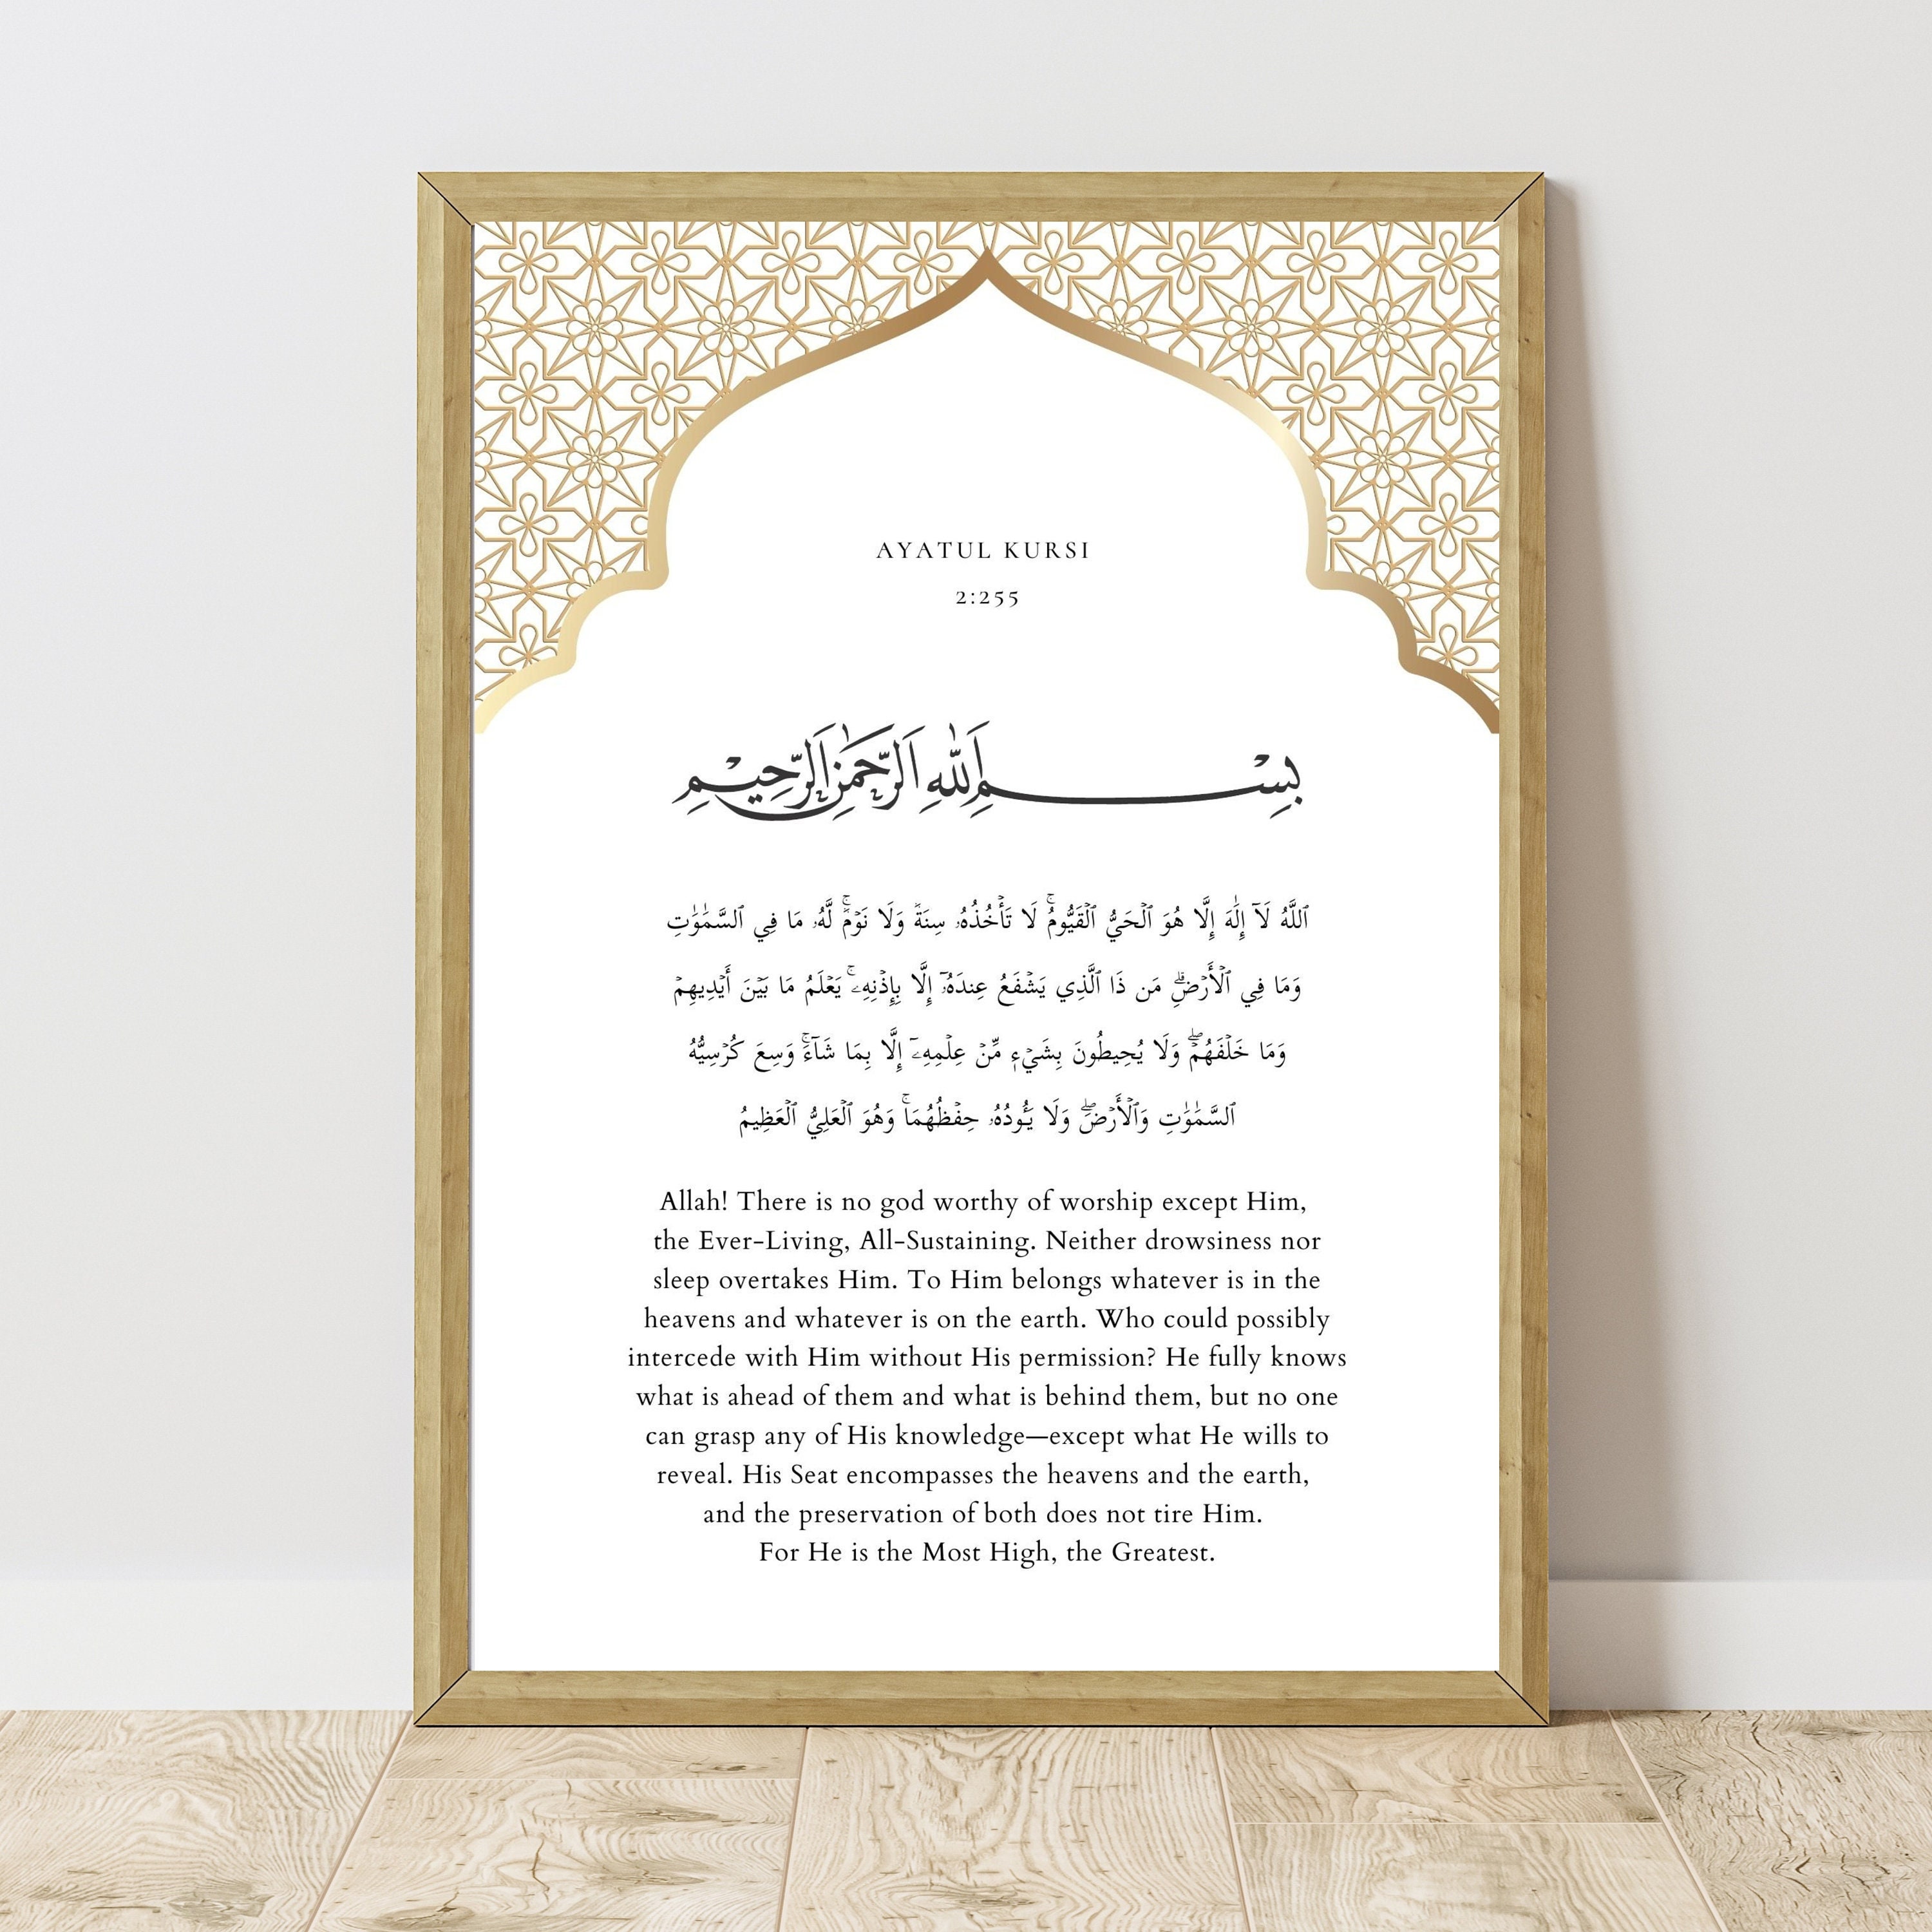 AYATUL KURSI
2:255
بِسْمِ اللَّهِ الرَّحْمَٰنِ الرَّحِيمِ
ٱللَّهُ لَآ إِلَٰهَ إِلَّا هُوَ ٱلْحَيُّ ٱلْقَيُّومُ ۚ لَا تَأْخُذُهُۥ سِنَةٌ وَلَا نَوْمٌ ۚ لَّهُۥ مَا فِي ٱلسَّمَٰوَٰتِ
وَمَا فِي ٱلْأَرْضِ ۗ مَن ذَا ٱلَّذِي يَشْفَعُ عِندَهُۥٓ إِلَّا بِإِذْنِهِۦ ۚ يَعْلَمُ مَا بَيْنَ أَيْدِيهِمْ
وَمَا خَلْفَهُمْ ۖ وَلَا يُحِيطُونَ بِشَيْءٍ مِّنْ عِلْمِهِۦٓ إِلَّا بِمَا شَآءَ ۚ وَسِعَ كُرْسِيُّهُ
ٱلسَّمَٰوَٰتِ وَٱلْأَرْضَ ۖ وَلَا يَـُٔودُهُۥ حِفْظُهُمَا ۚ وَهُوَ ٱلْعَلِيُّ ٱلْعَظِيمُ
Allah! There is no god worthy of worship except Him,
the Ever-Living, All-Sustaining. Neither drowsiness nor
sleep overtakes Him. To Him belongs whatever is in the
heavens and whatever is on the earth. Who could possibly
intercede with Him without His permission? He fully knows
what is ahead of them and what is behind them, but no one
can grasp any of His knowledge—except what He wills to
reveal. His Seat encompasses the heavens and the earth,
and the preservation of both does not tire Him.
For He is the Most High, the Greatest.